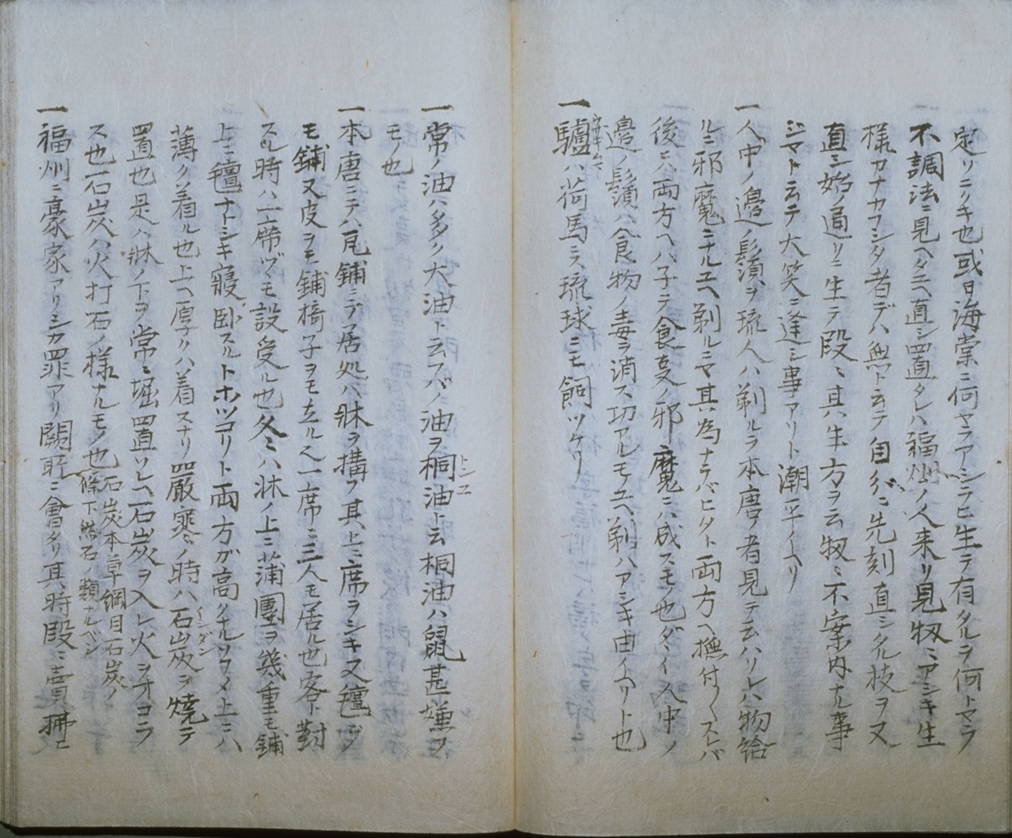 定リニリキ也或日海棠ニ何ヤラアシラヒ生テ有タルヲ何トマラ
不調法ニ見ヘタユヘ直シ置直タレハ福州ノ人来リ見扨ミアシキ生
様カナカフシタ者デハ無ト云テ自ガニ先刻直シタル枝ヲ又
直シ始ノ通リニ生テ段々其生方ヲ云扨々不案内ナル事
ジマト云テ大笑ニ逢シ事アリト潮平イヘリ
一人中ノ邊ノ鬚ヲ琉人ハ剃ルヲ本唐ノ者見テ云ハリレハ物給
ルニ邪魔ニナルユヘ剃ルニマ其為ナラバヒタト両方ヘ撫付〱スレバ
後ニハ両方ヘハ子テ食支ノ邪魔ニハ成スモノ也ダイ人中ノ
邉ノ鬚ハ食物ノ毒ヲ消ス功アルモノユヘ剃ハアシキ由イヘリト也
一驢ハ荷馬ニス琉球ニモ飼ツケリ
一常ノ油ハ多ク大油ト云スバノ油ヲ桐油ト云桐油ハ鼠甚嫌フ
トンユ
モノ也
一本唐ニテハ瓦鋪ニテ居処ハ牀ヲ搆フ其上ニ席ヲシキ又氈ヲ
モ鋪又皮ヲモ鋪椅子ヲモ立ル也一席ニ三人モ居ル也客ト對
スル時ハ一席ヅヽモ設受ル也冬ミハ牀ノ上ニ蒲團ヲ幾重モ鋪
上ニ氈ナトシキ寝臥スルトホツコリト両方ガ高クナルソウメ上ニハ
薄ク着ル也上ヘ厚クハ着スナリ嚴寒ノ時ハ石炭ヲ焼テ
イシダン
置也是ハ牀ノ下ヲ常ニ堀置ソレヘ石炭ヲ入レ火ヲオコラ
ス也石炭ハ火打石ノ様ナルモノ也
石炭本草綱目石炭ノ
條下燃石ノ類ナルベシ
一福州ニ豪家アリシカ罪アリ闕所ニ會タリ其時段々賣拂ヒ